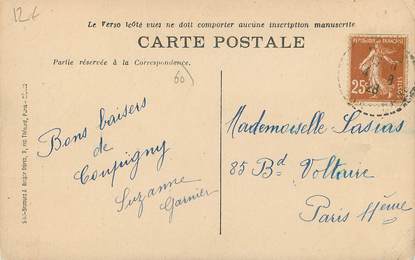 12€
Le Verso (côté vue) ne doit comporter aucune inscription manuscrite.
CARTE POSTALE
Partie réservée à la Correspondance.
(60)
REPUBLIQUE FRANÇAISE
25c
POSTES
Bons baisers
de
Coupigny
Suzanne
Garnier
Mademoiselle Lasias
85 Bd Voltaire
Paris 11ème